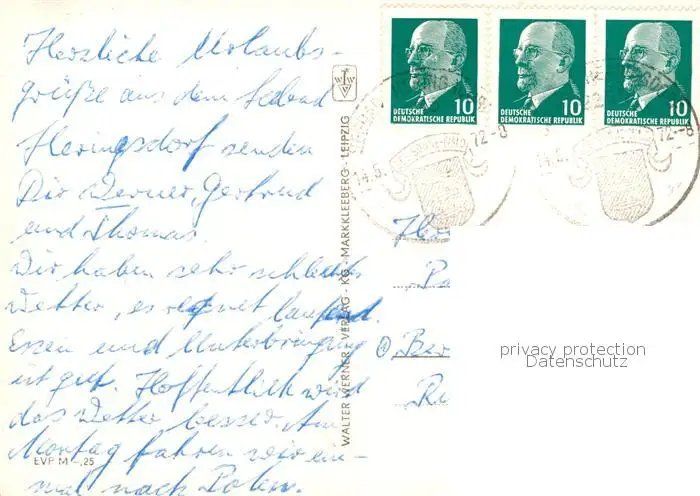 Herzliche Urlaubs-
grüße aus dem Seebad
Heringsdorf senden
Dir Werner, Gertrud
und Thomas.
Wir haben sehr schlechtes
Wetter, es regnet laufend.
Essen und Unterbringung
ist gut. Hoffentlich wird
das Wetter besser. Am
Montag fahren wir ein-
mal nach Polen.
EVP M -,25
WALTER WERNER - VERLAG - KG - MARKKLEEBERG - LEIPZIG
10
DEUTSCHE
DEMOKRATISCHE REPUBLIK
10
DEUTSCHE
DEMOKRATISCHE REPUBLIK
10
DEUTSCHE
DEMOKRATISCHE REPUBLIK
72-8
72-8
privacy protection
Datenschutz